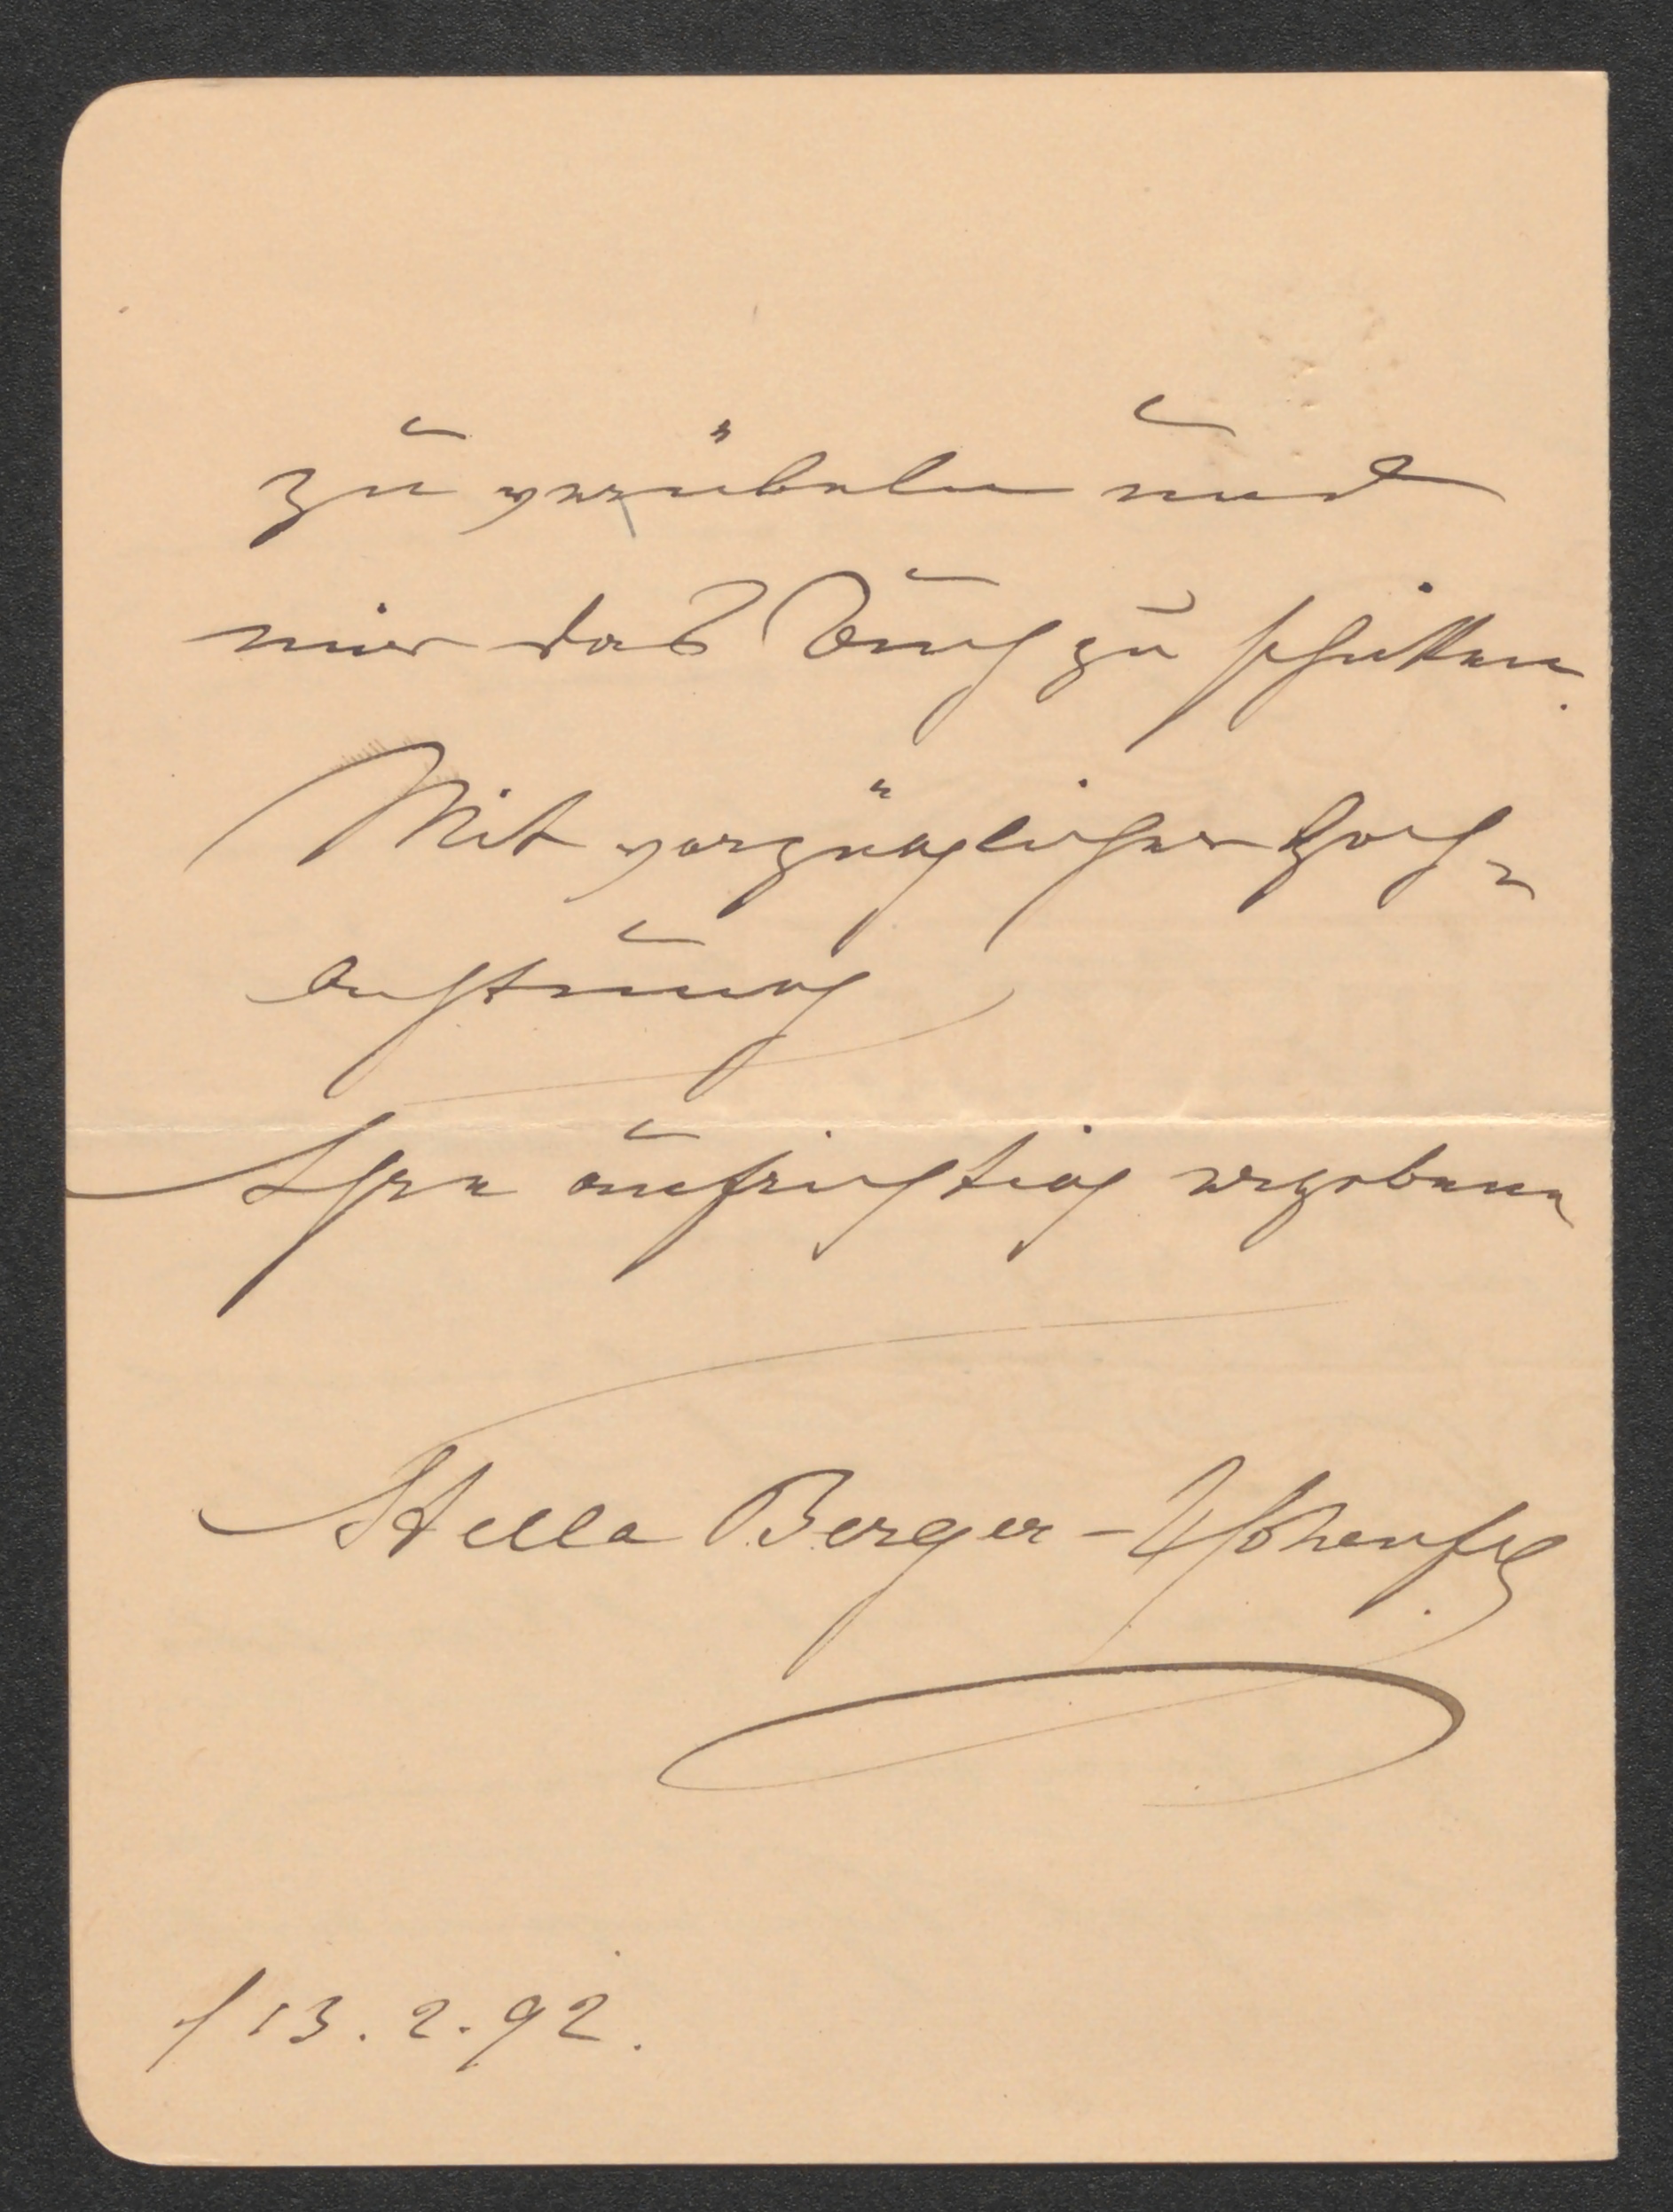 zu verübeln und
mir das Buch zu schicken.
Mit vorzüglicher Hoch-
achtung
Ihre aufrichtig ergebene
Stella Berger-Hohenfels
/ 13. 2. 92.